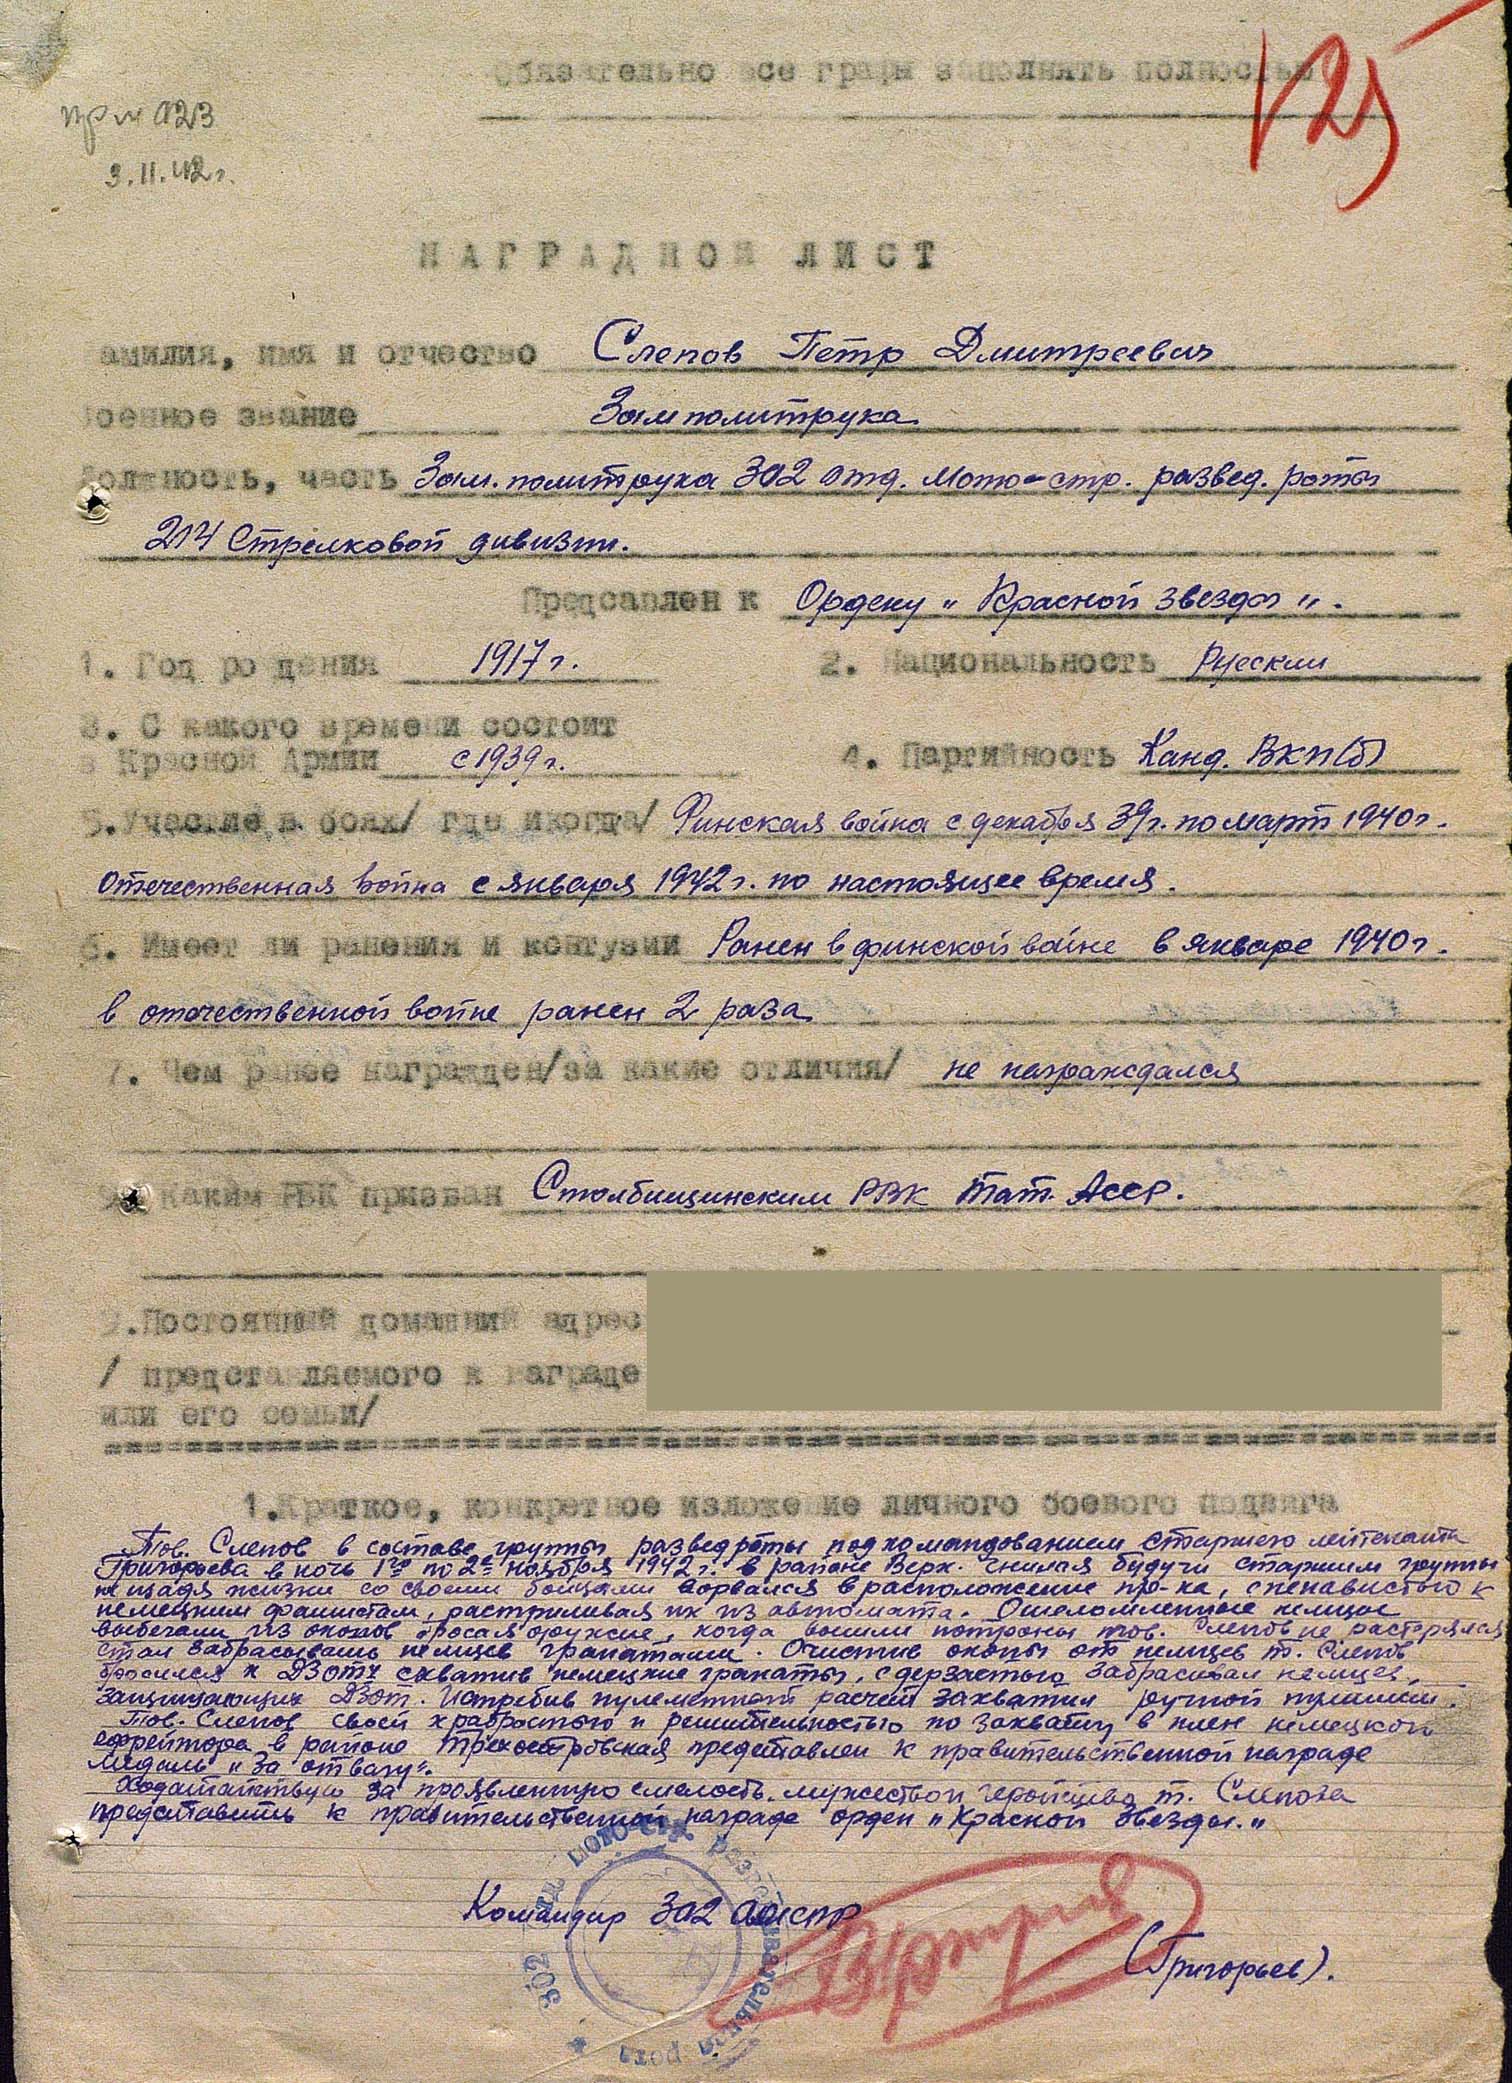 Обязательно все графы заполнять полностью
125
пр № 023
3.11.42г.
НАГРАДНОЙ ЛИСТ
амилия, имя и отчество Слепов Петр Дмитреевич
оенное звание Замполитрука
олжность, часть Зам. политрука 302 отд. мото-стр. развед. роты
214 Стрелковой дивизии.
Предсавлен к Ордену "Красной звезды".
1. Год рождения 1917 г. 2. Национальность Русский
3. С какого времени состоит
в Красной Армии с 1939 г. 4. Партийность Канд. ВКП(б)
5. Участие в боях/ где икогда/ Финская война с декабря 39г. по март 1940г.
отечественная война с января 1942г. по настоящее время.
6. Имеет ли ранения и контузии Ранен в финской войне в январе 1940г.
в отечественной войне ранен 2 раза
7. Чем ранее награжден/за какие отличия/ не награждался
каким РВК призван Столбищинским РВК Тат. АССР.
9. Постоянный домашний адрес
/ представляемого к награде
или его семьи/
1. Краткое, конкретное изложение личного боевого подвига
Тов. Слепов в составе группы разведроты под командованием старшего лейтенанта
Григорьева в ночь 1го по 2е ноября 1942г. в районе Верх. Гнилая будучи старшим группы
не щадя жизни со своими бойцами ворвался в расположение пр-ка, с ненавистью к
немецким фашистам, растриливая их из автомата. Ошеломленные немцы
выбегали из окопов бросая оружие, когда вышли патроны тов. Слепов не растерялся
стал забрасывать немцев гранатами. Очистив окопы от немцев т. Слепов
бросился к ДЗоту схватив немецкие гранаты, с дерзастью забрасывал немцев,
защищающих ДЗот. Истребив пулеметный расчет захватил ручной пулимет.
Тов. Слепов своей храбростью и решительностью по захвату в плен немецкого
ефрейтора в районе Трехостровская представлен к правительственной награде
медаль "За отвагу".
Ходатайствую за проявленную смелость, мужество и геройство т. Слепова
представить к правительственной награде орден "Красной Звезды."
302 отд мото-стр. разведывательная рота
Командир 302 омстр
(Григорьев).